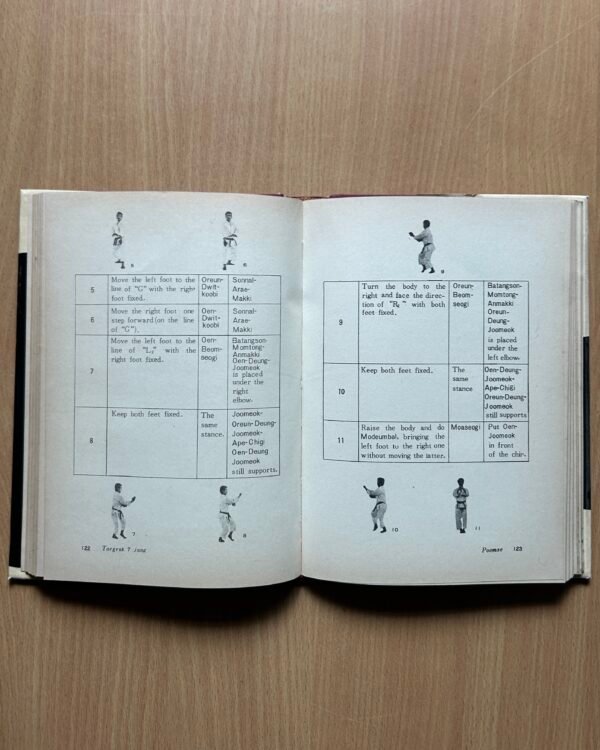 5
6
5
Move the left foot to the
line of "G" with the right
foot fixed.
Oreun-
Dwit-
koobi
Sonnal-
Arae-
Makki
6
Move the right foot one
step forward (on the line
of "G").
Oen-
Dwit-
koobi
Sonnal-
Arae-
Makki
7
Move the left foot to the
line of "L₂" with the
right foot fixed.
Oen-
Beom-
seogi
Batangson-
Momtong-
Anmakki
Oen-Deung-
Joomeok
is placed
under the
right
elbow.
8
Keep both feet fixed.
The
same
stance.
Joomeok-
Oreun-Deung-
Joomeok-
Ape-Chigi
Oen-Deung
Joomeok
still supports.
7
8
122 Taegeuk 7 Jang
9
9
Turn the body to the
right and face the direc-
tion of "R₂" with both
feet fixed.
Oreun-
Beom-
seogi
Batangson-
Momtong-
Anmakki
Oreun-
Deung-
Joomeok
is placed
under the
left elbow.
10
Keep both feet fixed.
The
same
stance
Oen-Deung-
Joomeok-
Ape-Chigi
Oreun-Deung-
Joomeok
still supports
11
Raise the body and do
Modeumbal, bringing the
left foot to the right one
without moving the latter.
Moaseogi
Put Oen-
Joomeok
in front
of the chin.
10
11
Poomse 123